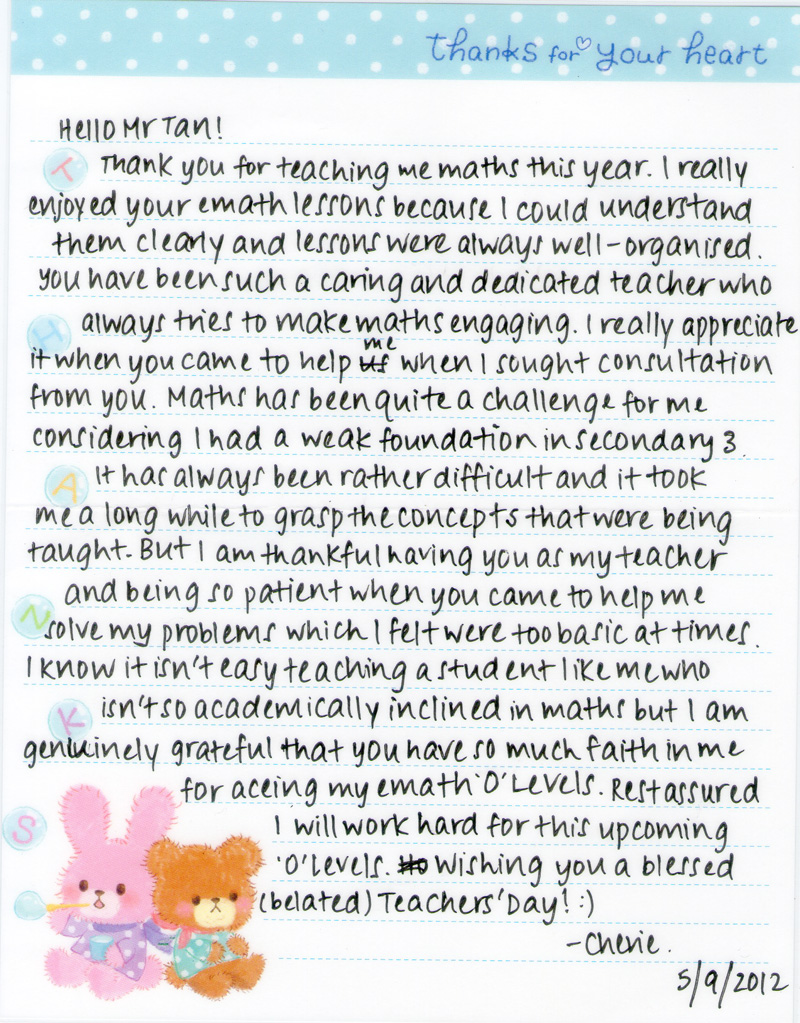 thanks for your heart
Hello Mr Tan!
T
Thank you for teaching me maths this year. I really
enjoyed your emath lessons because I could understand
them clearly and lessons were always well-organised.
You have been such a caring and dedicated teacher who
H
always tries to make maths engaging. I really appreciate
me
it when you came to help us when I sought consultation
from you. Maths has been quite a challenge for me
considering I had a weak foundation in secondary 3.
A
It has always been rather difficult and it took
me a long while to grasp the concepts that were being
taught. But I am thankful having you as my teacher
and being so patient when you came to help me
N
solve my problems which I felt were too basic at times.
I know it isn't easy teaching a student like me who
K
isn't so academically inclined in maths but I am
genuinely grateful that you have so much faith in me
for aceing my emath 'O' Levels. Rest assured
S
I will work hard for this upcoming
'O' Levels. Wishing you a blessed
(belated) Teachers' Day! :)
-Cherie.
5/9/2012